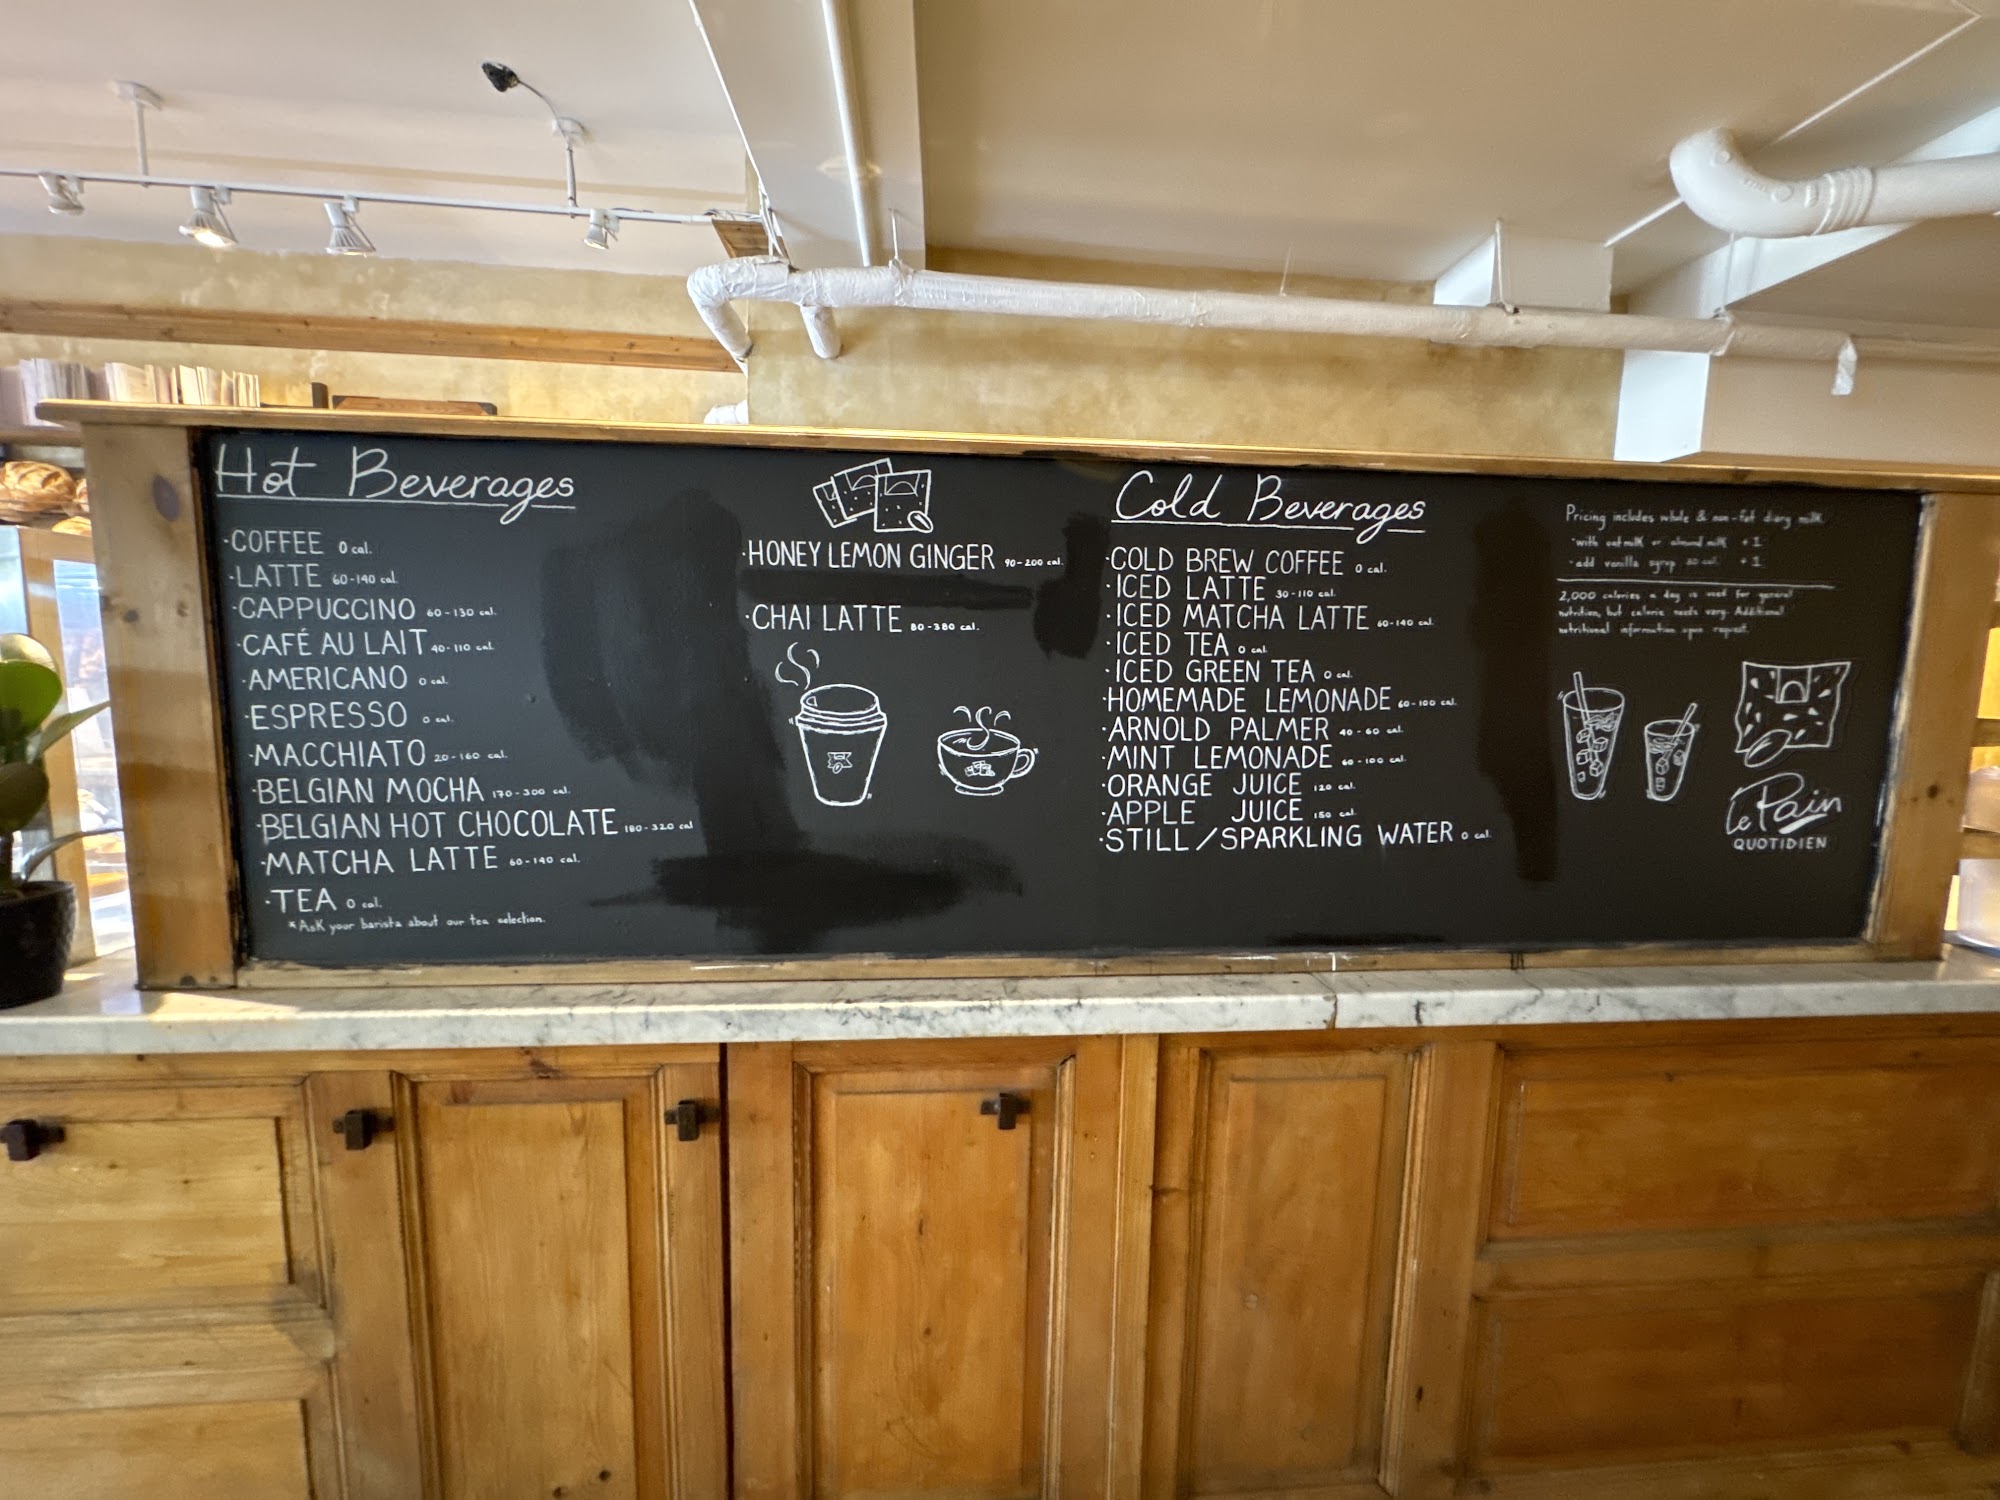 Hot Beverages
·COFFEE 0 cal.
·LATTE 60-140 cal.
·CAPPUCCINO 60-130 cal.
·CAFÉ AU LAIT 40-110 cal.
·AMERICANO 0 cal.
·ESPRESSO 0 cal.
·MACCHIATO 20-160 cal.
·BELGIAN MOCHA 170-300 cal.
·BELGIAN HOT CHOCOLATE 180-320 cal
·MATCHA LATTE 60-140 cal.
·TEA 0 cal.
*Ask your barista about our tea selection.
·HONEY LEMON GINGER 90-200 cal.
·CHAI LATTE 80-380 cal.
Cold Beverages
·COLD BREW COFFEE 0 cal.
·ICED LATTE 30-110 cal.
·ICED MATCHA LATTE 60-140 cal.
·ICED TEA 0 cal.
·ICED GREEN TEA 0 cal.
·HOMEMADE LEMONADE 60-100 cal.
·ARNOLD PALMER 40-60 cal.
·MINT LEMONADE 60-100 cal.
·ORANGE JUICE 120 cal.
·APPLE JUICE 150 cal.
·STILL/SPARKLING WATER 0 cal.
Pricing includes whole & non-fat diary milk
·with oatmilk or almond milk +1
·add vanilla syrup 80 cal +1
2,000 calories a day is used for general
nutrition, but calorie needs vary. Additional
nutritional information upon request.
le Pain
QUOTIDIEN